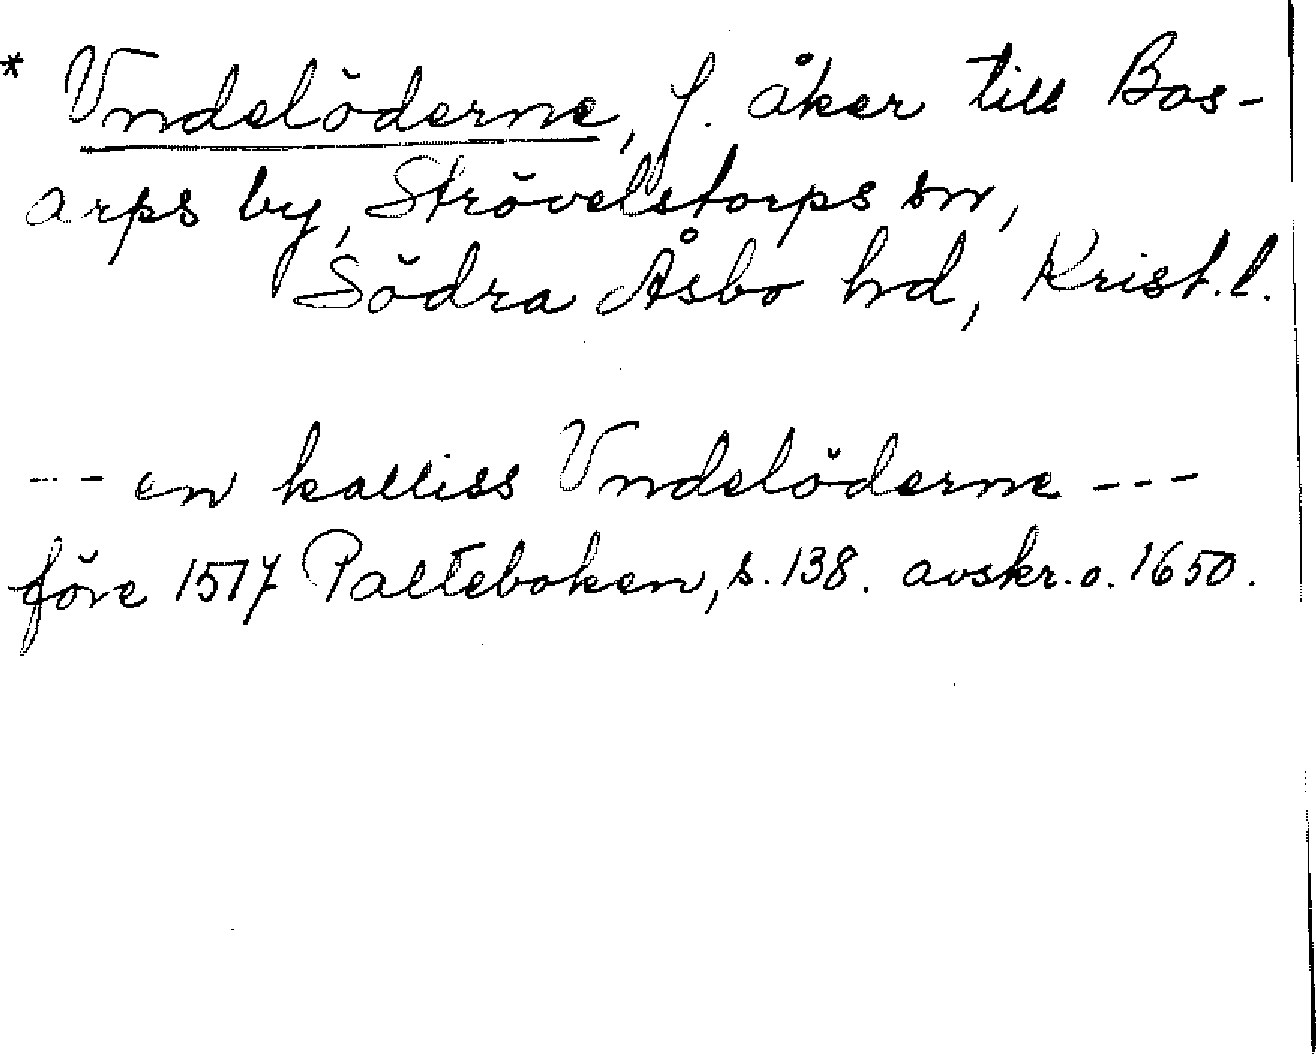 * Vndelöderne, f. åker till Bos-
arps by, Strövelstorps sn,
Södra Åsbo hd, Krist. l.
--- en kalliss Vndelöderne ---
före 1517 Palteboken, s. 138. avskr. o. 1650.